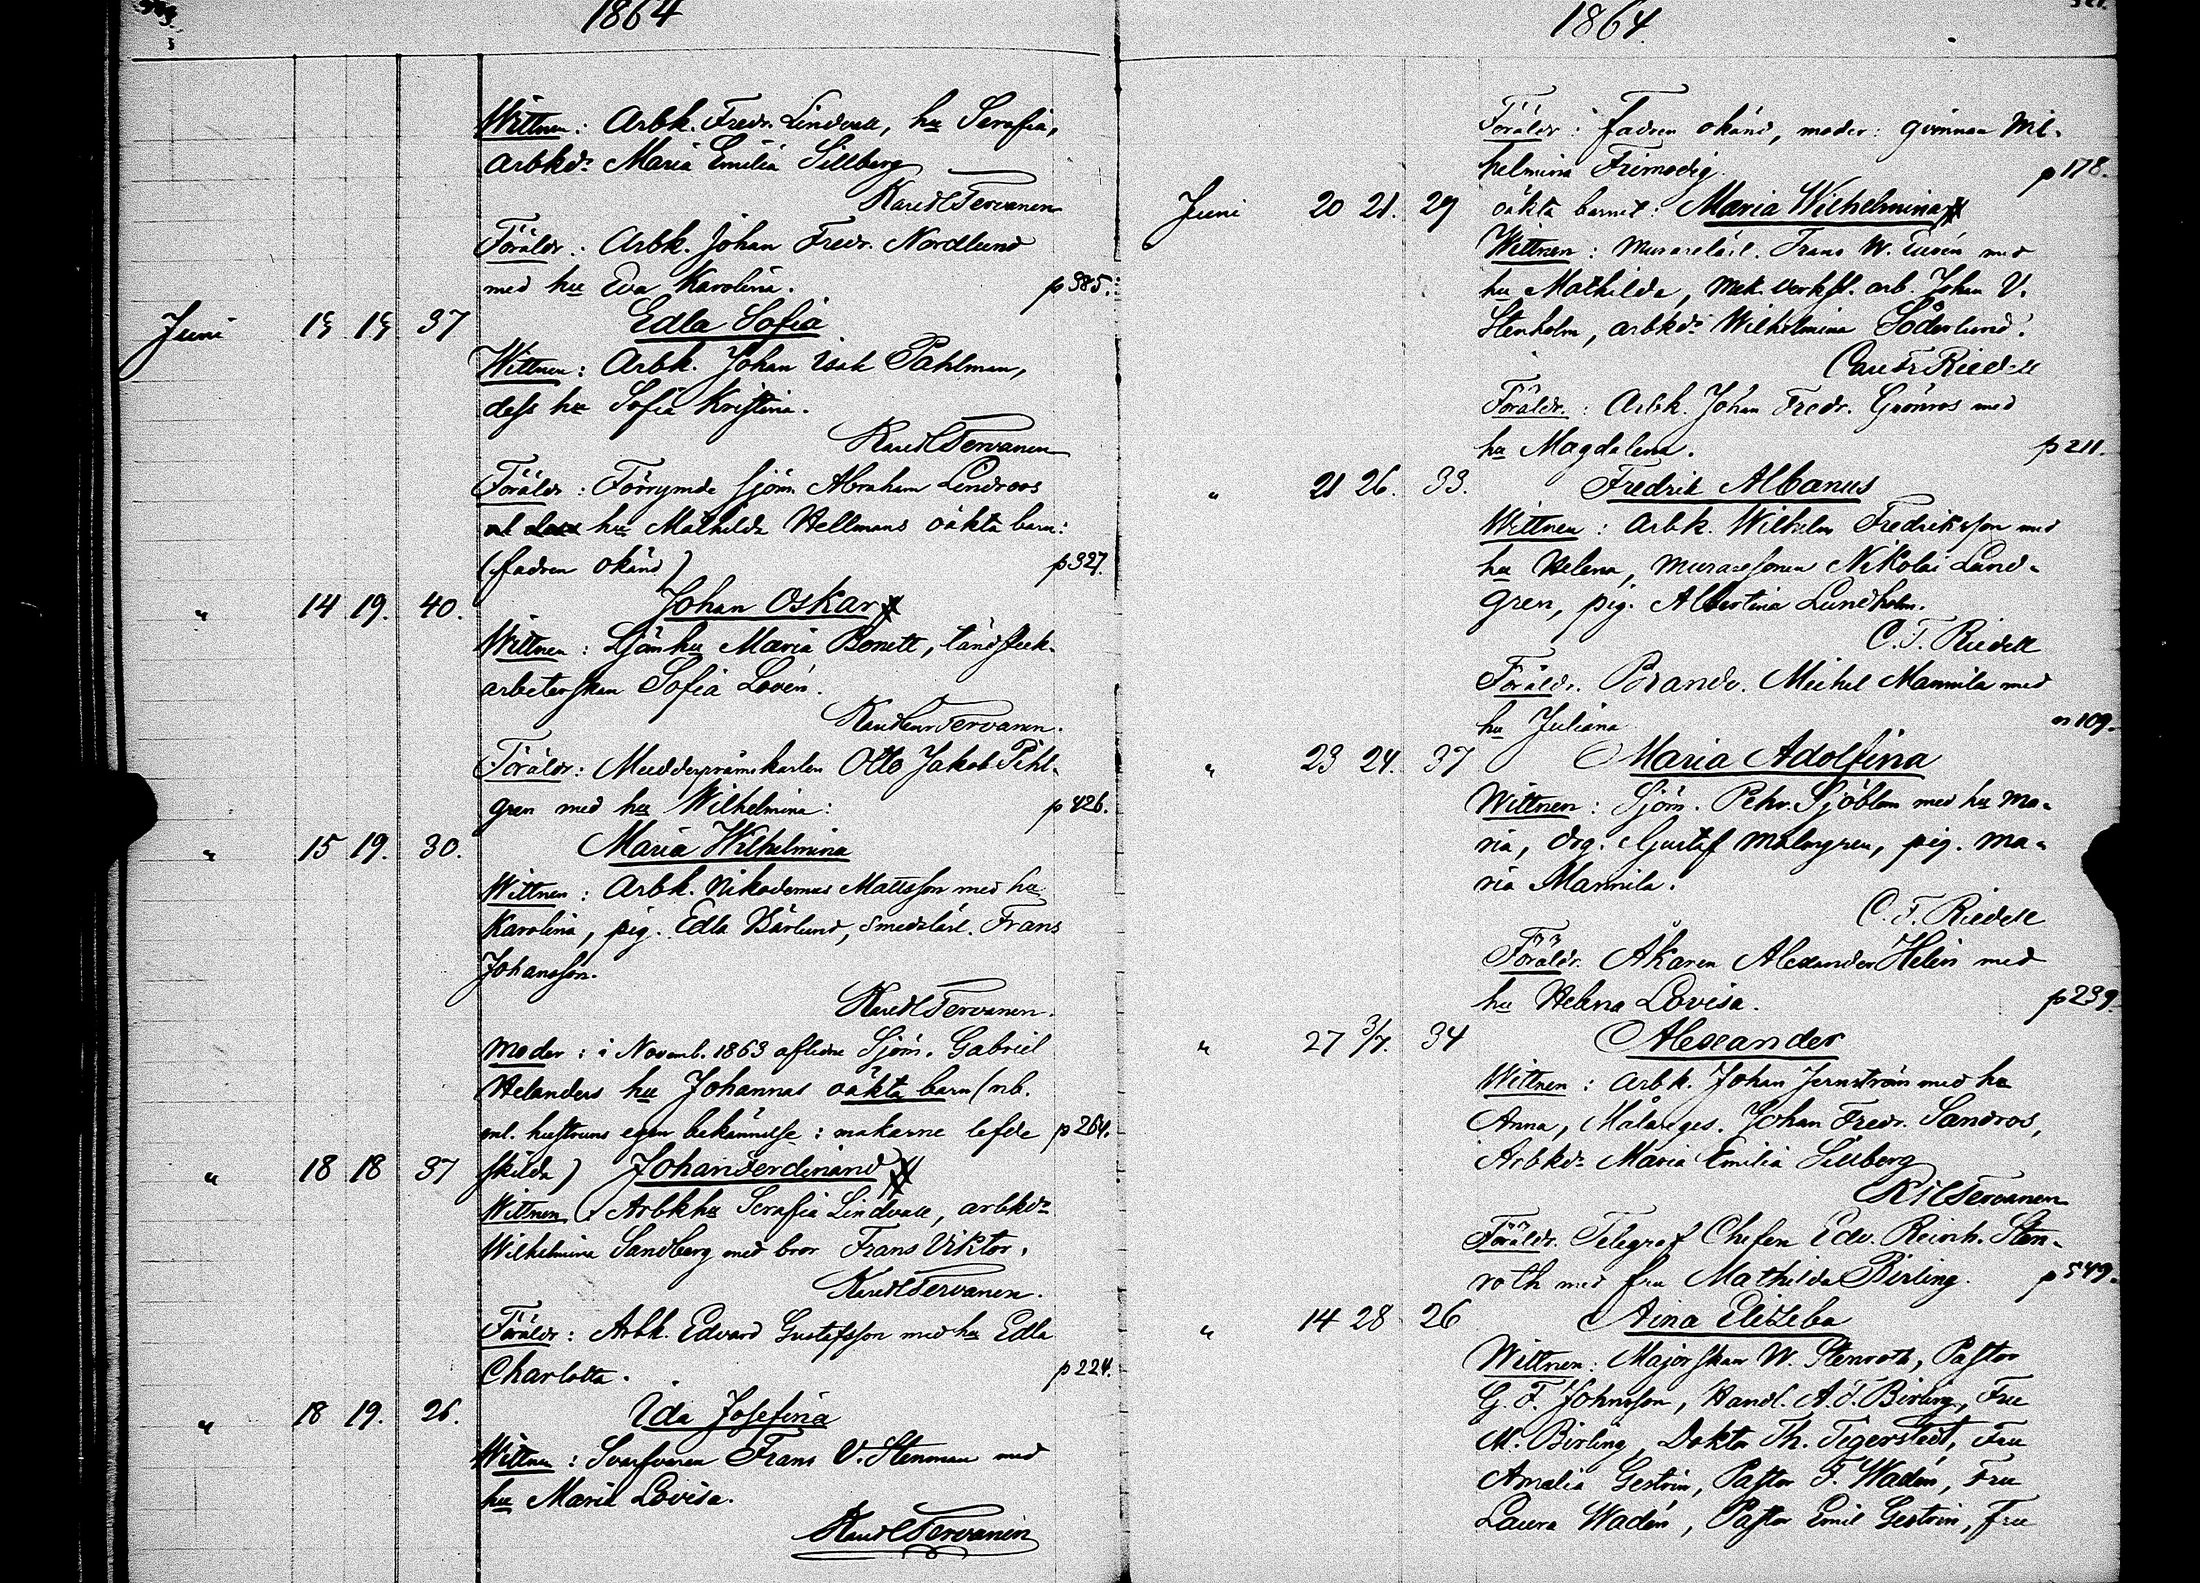 1864
Wittnen: Arbk. Fredr. Lindvall, hu Serafia,
arbkdr Maria Emilia Sillberg
Tervanen
Föräldr: Arbk. Johan Fredr. Nordlund
med hu Eva Karolina. p385.
Juni 37 Edla Sofia
Wittnen: Arbk. Johan Isak Pahlman,
dess hu Sofia Kristina.
Tervanen
Föräldr: Förrymde sjöm Abraham Lindroos
hu Mathilda Hellmans oäkta barn:
(fadren okänd) p327.
" 14 19. 40. Johan Oskar
Wittnen: Sjömhu Maria Bonett, tändstick-
arbeterskan Sofia Lovén.
Tervanen.
Föräldr: Mudderpråmskarlen Otto Jakob Pihl-
gren med hu Wilhelmina: p426.
" 15 19. 30. Maria Wilhelmina
Wittnen: Arbk. Nikodemus Mattsson med hu
Karolina, pig. Edla Bärlund, smedslärl. Frans
Johansson.
Tervanen.
Moder: i Novemb. 1863 aflidne Sjöm. Gabriel
Helanders hu Johannas oäkta barn (nb.
enl. hustruns egen bekännelse: makarne lefde p264.
" 18 18 37 skilda) Johan Ferdinand
Wittnen: Arbkhu Serafia Lindvall, arbkdr
Wilhelmina Sandberg med bror Frans Viktor.
Tervanen.
Föräldr: Arbk. Edvard Gustafsson med hu Edla
Charlotta. p224.
" 18 19. 26. Ida Josefina
Wittnen: Svarfvaren Frans V. Stenman med
hu Maria Lovisa.
Tervanen
1864.
Föräldr: Fadren okänd, moder: qvinnan Wil-
helmina Frimodig. p178.
Juni 20 21. 29 oäkta barnet: Maria Wilhelmina
Wittnen: Murarelärl. Frans W. med
hu Mathilda, mek. verkst. arb. Johan V.
Stenholm, arbkdr Wilhelmina Söderlund.
Riedell
Föräldr.: Arbk. Johan Fredr. Grönros med
hu Magdalena. p211.
" 21 26. 33. Fredrik Albanus
Wittnen: Arbk. Wilhelm Fredriksson med
hu Helena, muraresonen Nikolai Lind-
gren, pig. Albertina Lundholm.
C. F. Riedell
Föräldr. Michel Mannila med
hu Juliana 109.
" 23 24. 37 Maria Adolfina
Wittnen: Sjöm. Pehr. Sjöblom med hu Ma-
ria, drg. Gustaf Malmgren, pig. Ma-
ria Mannila.
C. F. Riedell
Föräldr. Åkaren Alexander Helin med
hu Helena Lovisa. p239.
" 27 3/7. 34 Alexander
Wittnen: Arbk. Johan Jernström med hu
Anna, Målareges. Johan Fredr. Sandros,
Arbkdr Maria Emilia Sillberg
Tervanen
Föräldr. Telegraf Chefen Edv. Reinh. Sten-
roth med fru Mathilda Birling. p549.
" 14 28 26 Aina Elizeba
Wittnen: Majorskan W. Stenroth, Pastor
G. F. Johnsson, Handl. A. F. Birling, Fru
M. Birling, Doktor Th. Tigerstedt, Fru
Amalia Gestrin, Pastor F. Wadén, Fru
Laura Wadén, Pastor Emil Gestrin, Fru